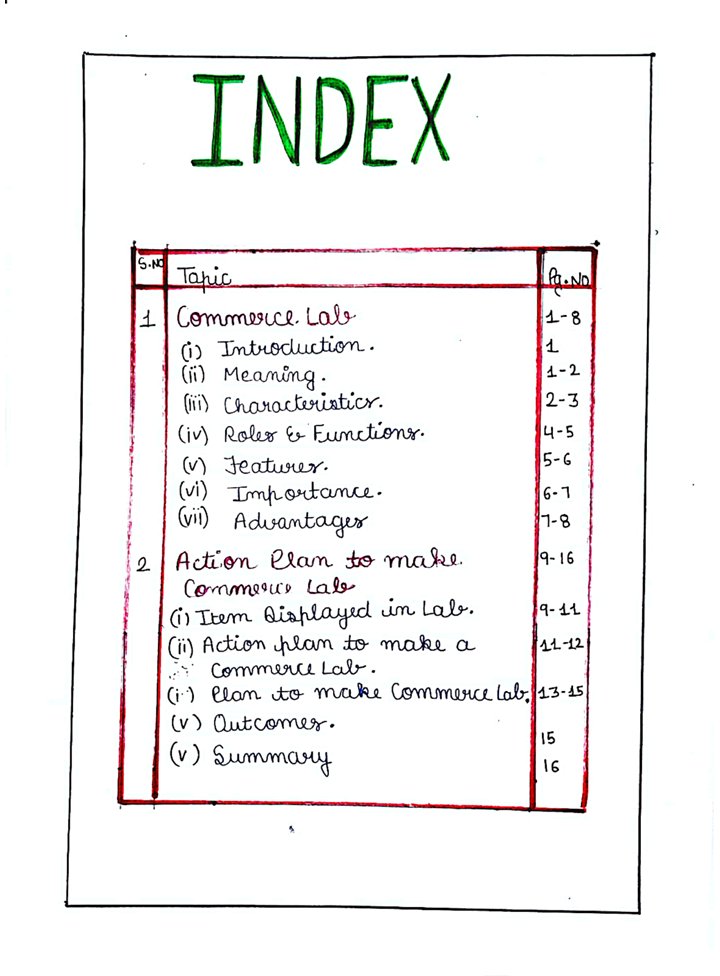 INDEX
S.NO Topic Pg.NO
1 Commerce Lab 1-8
(i) Introduction. 1
(ii) Meaning. 1-2
(iii) Characteristics. 2-3
(iv) Roles & Functions. 4-5
(v) Features. 5-6
(vi) Importance. 6-7
(vii) Advantages 7-8
2 Action Plan to make 9-16
Commerce Lab
(i) Item Displayed in Lab. 9-11
(ii) Action plan to make a 11-12
Commerce Lab.
(i) Plan to make Commerce Lab. 13-15
(v) Outcomes. 15
(v) Summary 16